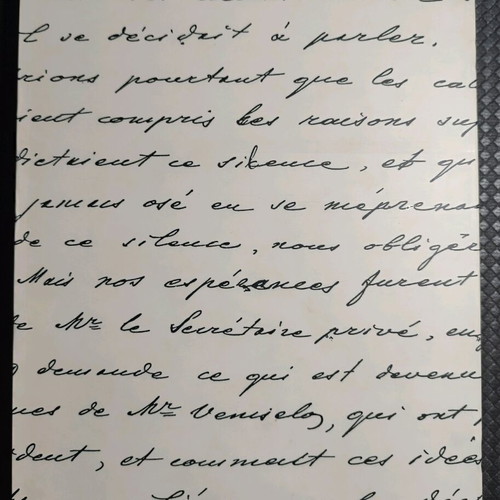 l se décidait à parler.
rions pourtant que les cal
ient compris les raisons sup
dictaient ce silence, et qu
jamais osé en se méprena
de ce silence, nous obligée
Mais nos espérances furent
e Mr le Secrétaire privé, en
demande ce qui est devenu
ues de Mr Veniselos, qui ont
dent, et comment ces idées